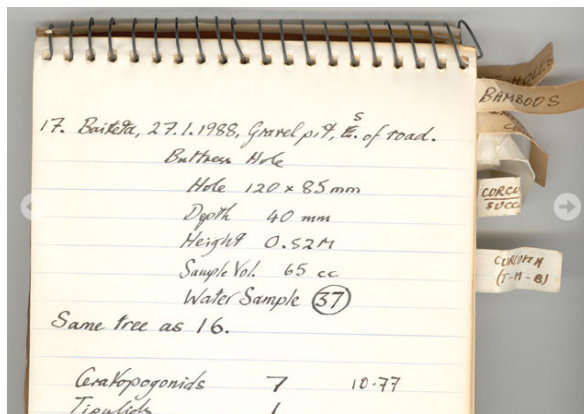 17. Baiteta, 27.1.1988, Gravel pit, S. of road.
Buttress Hole
Hole 120 x 85 mm
Depth 40 mm
Height 0.52M
Sample Vol. 65 cc
Water Sample 37
Same tree as 16.
Ceratopogonids 7 10.77
Tipulids 1
BAMBOOS
CURCU
SUCC
CURCUM
(T-M-B)